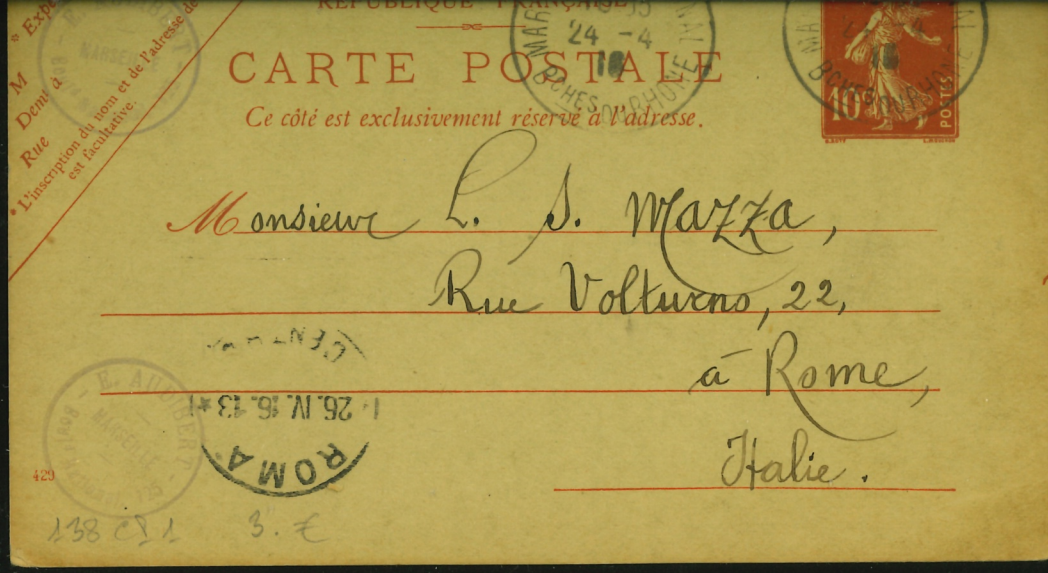 RÉPUBLIQUE FRANÇAISE
CARTE POSTALE
Ce côté est exclusivement réservé à l'adresse.
* Expé
M
Demt à
Rue
* L'inscription du nom et de l'adresse de
est facultative.
E. AUDIBERT
MARSEILLE
MAR
24 -4
16
BCHES DU RHONE
MA
16
BCHES DU RHONE
10c
POSTES
Monsieur L. S. Mazza,
Rue Volturno, 22,
à Rome,
Italie.
CENT
26.IV.16.13
ROMA
E. AUDIBERT
MARSEILLE
429
138 CP 1
3 €